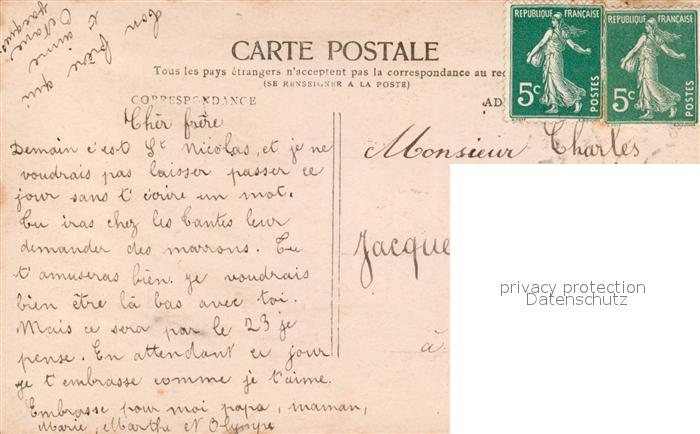 Ton
frère qui
t'aime
Octave
Jacques
CARTE POSTALE
Tous les pays étrangers n'acceptent pas la correspondance au rec
(SE RENSEIGNER A LA POSTE)
CORRESPONDANCE
AD
REPUBLIQUE FRANÇAISE
5c
POSTES
REPUBLIQUE FRANÇAISE
5c
POSTES
Chèr frère
Demain c'est St Nicolas, et je ne
voudrais pas laisser passer ce
jour sans t'écrire un mot.
Tu iras chez les tantes leur
demander des marrons. Tu
t'amuseras bien. je voudrais
bien être là bas avec toi.
Mais ce sera par le 23 je
pense. En attendant ce jour
je t'embrasse comme je t'aime.
Embrasse pour moi papa, maman,
Marie, Marthe et Olympe
Monsieur Charles
Jacque
à
privacy protection
Datenschutz